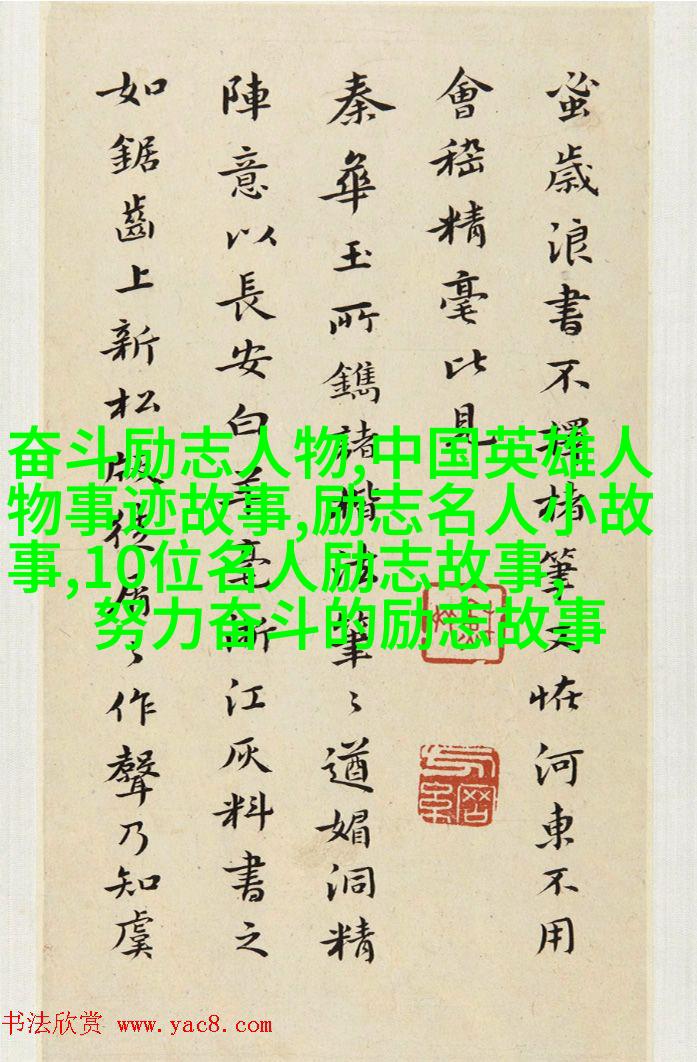 蚤歲浪書不擇楮筆又恠河東不用
會嵇精毫比見
秦華玉所鐫諸楷法筆〻遒媚洞精
陣意以長安白羊毫浙江灰料書之
如鋸齒上新松版徒〻作聲乃知虞
奋斗励志人物,中国英雄人
物事迹故事,励志名人小故
事,10位名人励志故事,
努力奋斗的励志故事
书法欣赏 www.yac8.com